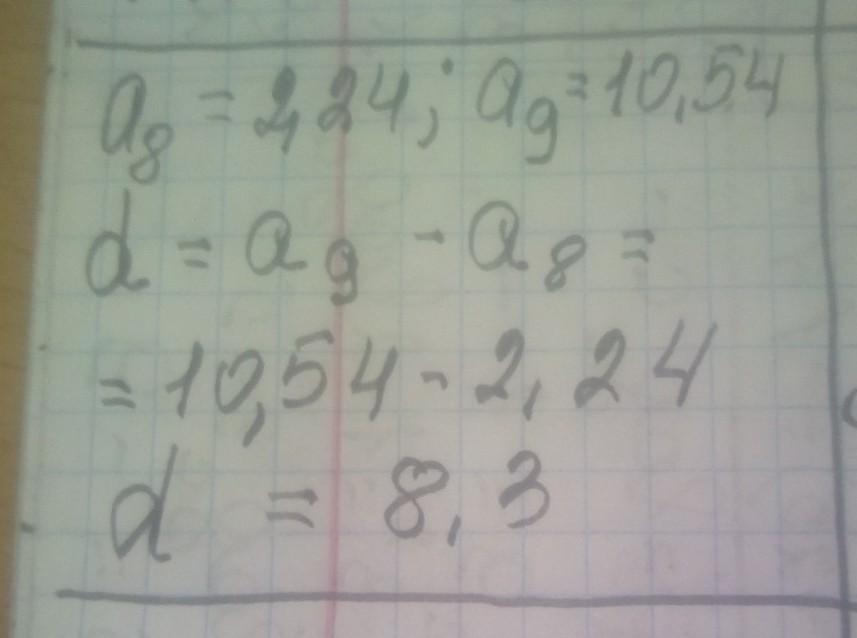 a₈ = 2,24; a₉ = 10,54
d = a₉ - a₈ =
= 10,54 - 2,24
d = 8,3